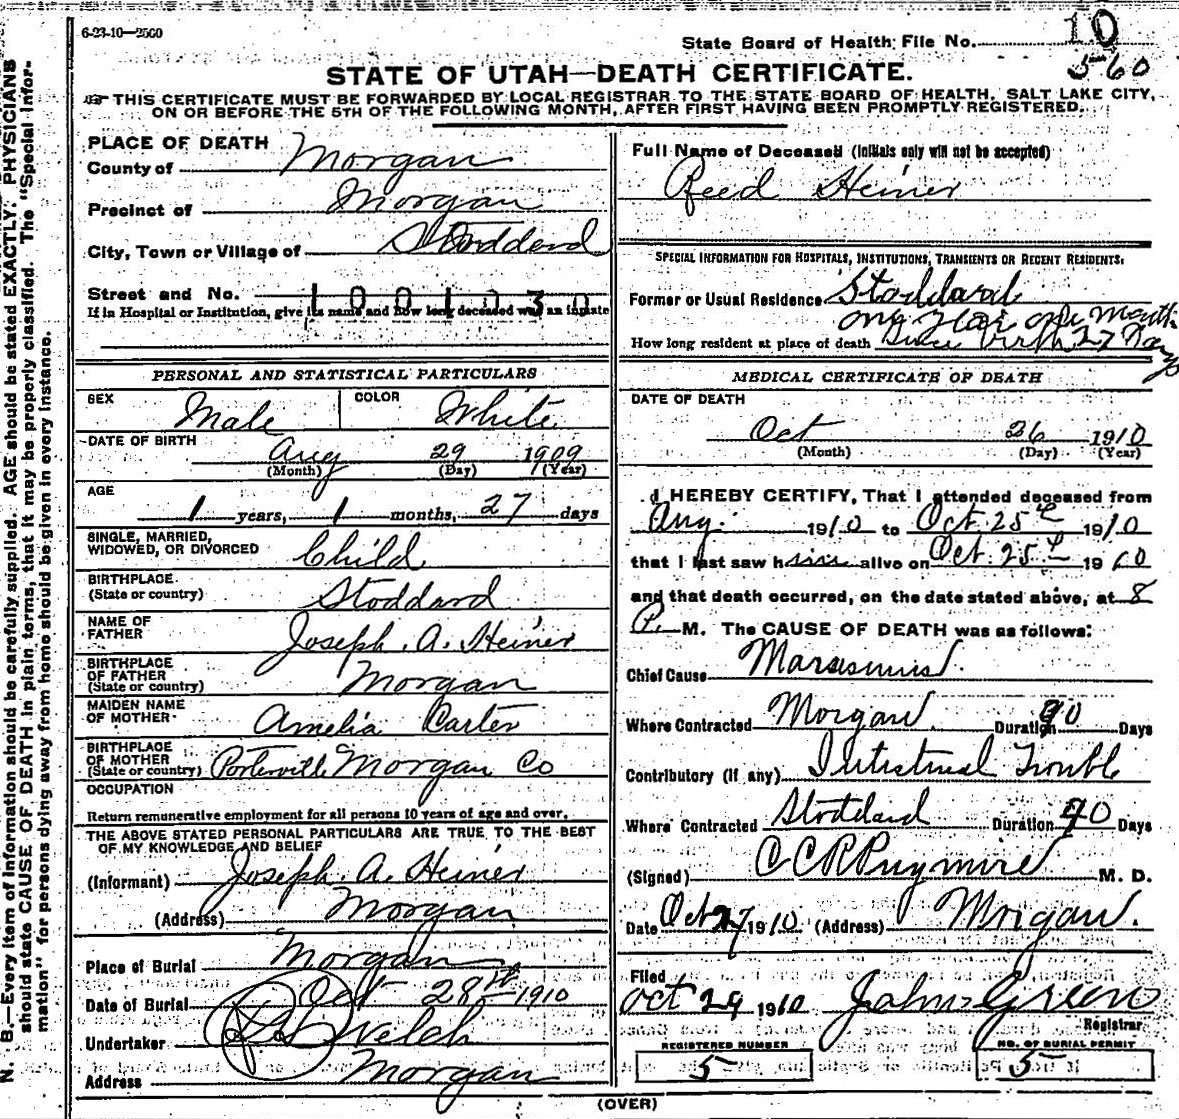 6-23-10—2500
State Board of Health File No. 10
560
STATE OF UTAH—DEATH CERTIFICATE.
THIS CERTIFICATE MUST BE FORWARDED BY LOCAL REGISTRAR TO THE STATE BOARD OF HEALTH, SALT LAKE CITY,
ON OR BEFORE THE 5TH OF THE FOLLOWING MONTH, AFTER FIRST HAVING BEEN PROMPTLY REGISTERED.
N. B.—Every item of Information should be carefully supplied. AGE should be stated EXACTLY. PHYSICIANS
should state CAUSE OF DEATH in plain terms, that it may be properly classified. The "Special Infor-
mation" for persons dying away from home should be given in every instance.
PLACE OF DEATH
County of Morgan
Precinct of Morgan
City, Town or Village of Stoddard
Street and No. 1001030
If in Hospital or Institution, give its name and how long deceased was an inmate
PERSONAL AND STATISTICAL PARTICULARS
SEX Male COLOR White
DATE OF BIRTH
Aug 29 1909
(Month) (Day) (Year)
AGE
1 years, 1 months, 27 days
SINGLE, MARRIED,
WIDOWED, OR DIVORCED Child
BIRTHPLACE
(State or country) Stoddard
NAME OF
FATHER Joseph. A. Heiner
BIRTHPLACE
OF FATHER
(State or country) Morgan
MAIDEN NAME
OF MOTHER Amelia Carter
BIRTHPLACE
OF MOTHER
(State or country) Porterville Morgan Co
OCCUPATION
Return remunerative employment for all persons 10 years of age and over.
THE ABOVE STATED PERSONAL PARTICULARS ARE TRUE TO THE BEST
OF MY KNOWLEDGE AND BELIEF
(Informant) Joseph. A. Heiner
(Address) Morgan
Place of Burial Morgan
Date of Burial Oct 28th 1910
Undertaker Welch
Address Morgan
Full Name of Deceased (Initials only will not be accepted)
Reed Heiner
SPECIAL INFORMATION FOR HOSPITALS, INSTITUTIONS, TRANSIENTS OR RECENT RESIDENTS.
Former or Usual Residence Stoddard
one Year one Month
How long resident at place of death since birth 27 Days
MEDICAL CERTIFICATE OF DEATH
DATE OF DEATH
Oct 26 1910
(Month) (Day) (Year)
I HEREBY CERTIFY, That I attended deceased from
Aug. 1910 to Oct. 25th 1910
that I last saw him alive on Oct. 25th 1910
and that death occurred, on the date stated above, at 8
P. M. The CAUSE OF DEATH was as follows:
Chief Cause Marasmus.
Where Contracted Morgan Duration 90 Days
Contributory (if any) Intestinal Trouble
Where Contracted Stoddard Duration 90 Days
(Signed) C C R Pugmire M. D.
Date Oct 27 1910. (Address) Morgan.
Filed
Oct 29 1910 John Green
Registrar
REGISTERED NUMBER
5
NO. OF BURIAL PERMIT
5
(OVER)